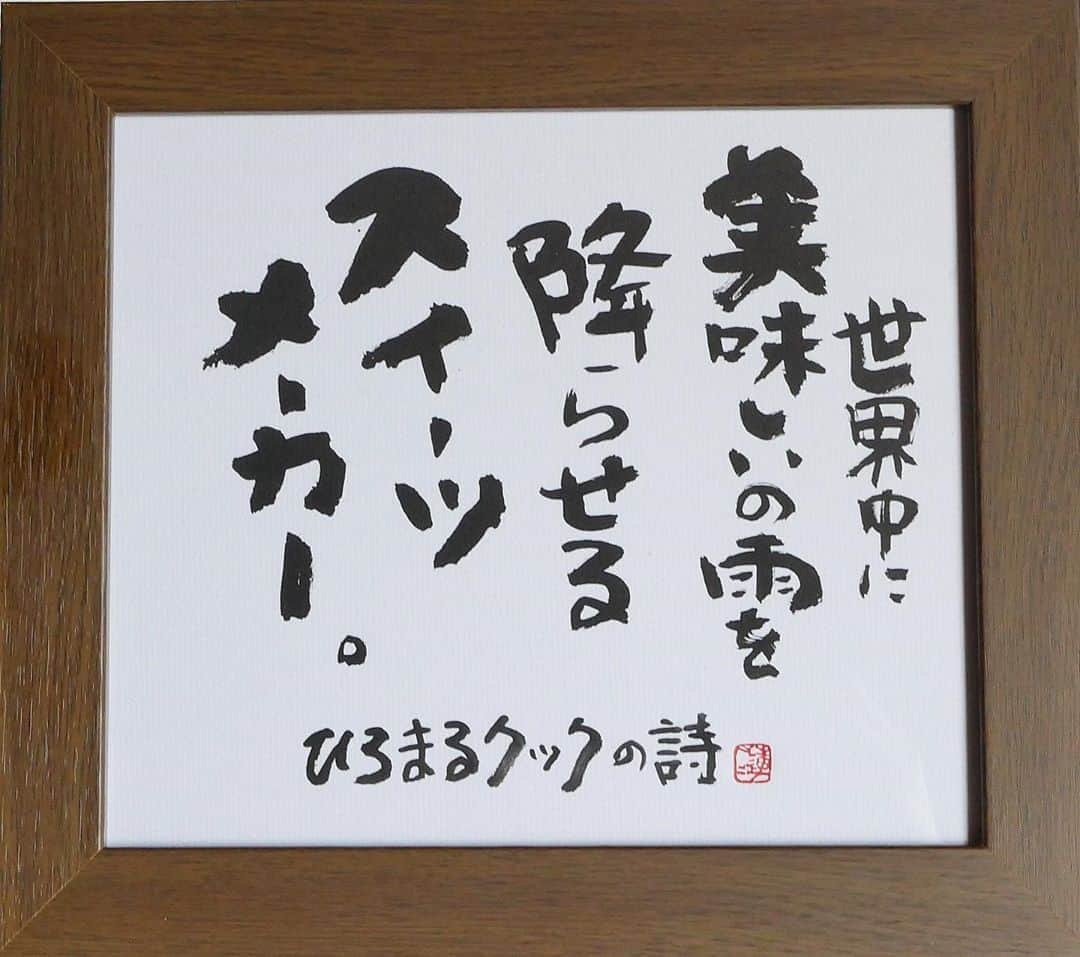 世界中に
美味しいの雨を
降らせる
スイーツ
メーカー。
ひろまるクックの詩